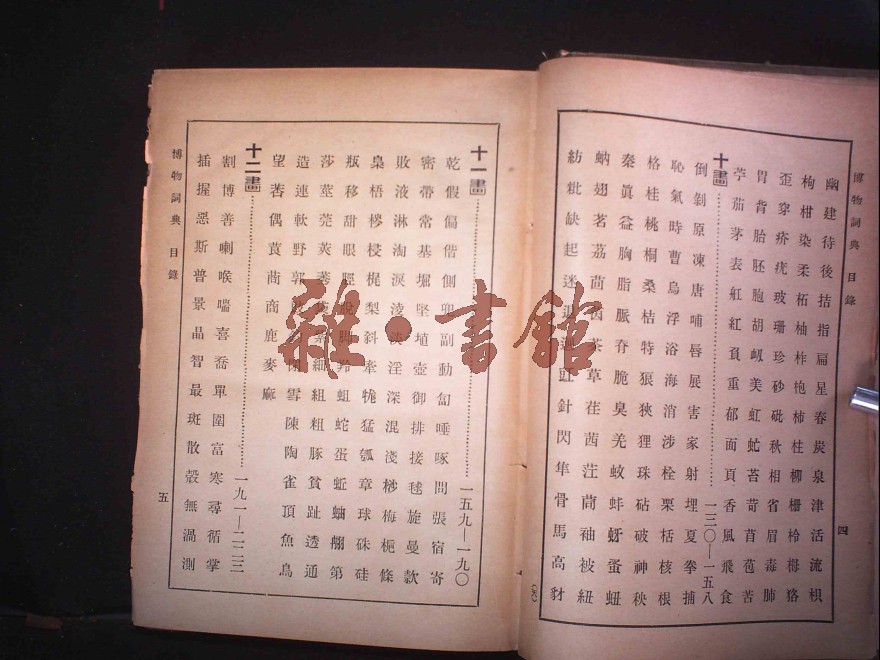 博物詞典 目錄
四
幽建待後拮指扁星春炭泉津活流枳
枸柑染柔柘柚柞枹柿柱柳柵柃栂狢
歪穿疥疣玻珊珍砂砒秋相省眉毒肺
胃背胎胚胞胡美虹虻苔苛苜苞苦
苧茄茅表紅負重郁面頁香風飛食
十畫
一三〇—一五八
倒剝原凍唐哺唇展害家射埋夏拳捕
恥氣時曹烏浮浴海消涉栓栗栝核根
格桂桃桐桑桔特狼狹狸珠砧破神秧
秦眞益胸脂脈脊脆臭羌蚊蚌蚜蚤蚓
蚋翅茗荔茴茵茶草荏茜茳茼袖被紐
紡紕缺起迷針閃隼骨馬高豺
博物詞典 目錄
五
十一畫
一五九—一九〇
乾假偏偕側副動匐唾啄問張宿寄
密帶常基堀堅埴壺御排接毬旋曼款
敗液淋淘淚淩淡淫深混淺桫梅梔條
梟梧梣梫梶梨斜牽牻猛瓠章球硃硅
瓶移甜眼脛脫脚羚蛆蛇蛋蚯蚰翎第
莎莖莞莢細組粗豚貧趾透通
造連軟野郭雪陳陶雀頂魚鳥
望菩偶莔商鹿麥麻
十二畫
一九一—二二三
割博善喇喉喘喜喬單圍富寒尋循掌
插握惡斯普景晶智最斑散殼無渦測
雜·書館